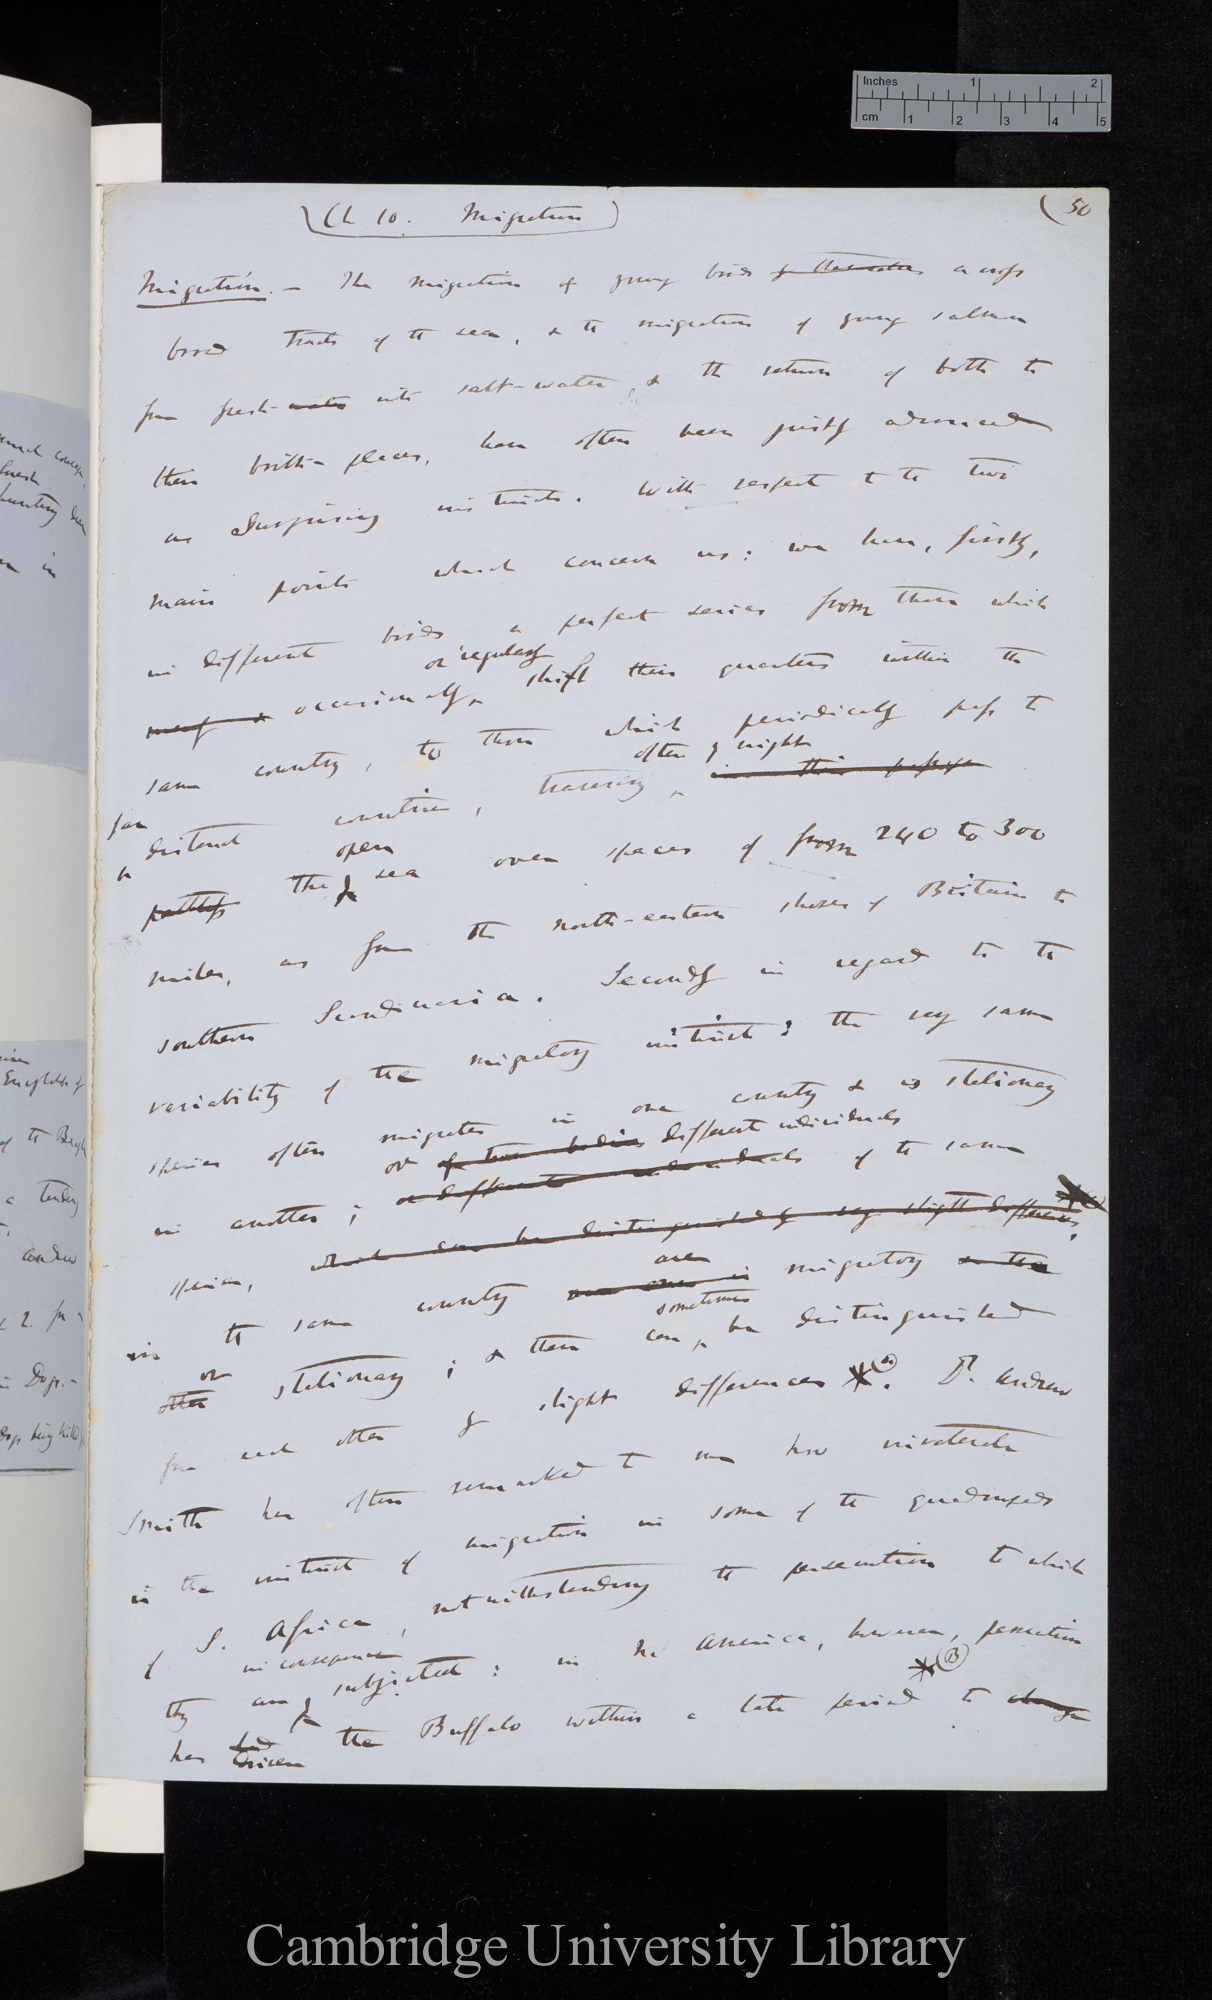 Inches 1 2
cm 1 2 3 4 5
(Ch 10. Migration)
(50
Migration. — The migration of young birds across
broad tracts of the sea, & the migration of young salmon
from fresh-water into salt-water, & the return of both to
their birth-places, have often been justly advanced
as surprising instincts. With respect to the two
main points which concern us: we have, firstly,
in different birds a perfect series from those which
or regularly
occasionally shift their quarters within the
same country, to those which periodically pass to
often by night
far distant countries, traversing in their passage
open
pathless the sea over spaces of from 240 to 300
miles, as from the north-eastern shores of Britain to
southern Scandinavia. Secondly in regard to the
variability of the migratory instinct; the very same
species often migrates in one country & is stationary
or different individuals
in another; or different individuals of the same
species, which can be distinguished by very slight differences,
are
in the same country migratory
sometimes
or stationary; & these can be distinguished
from each other by slight differences (a). Dr. Andrew
Smith has often remarked to me how inveterate
is the instinct of migration in some of the quadrupeds
of S. Africa, notwithstanding the persecution to which
in consequence
they are subjected: in N. America, however, persecution
(B)
has driven the Buffalo within a late period to change
much
fresh
hunting
in
English
of the
a
Andrew
2
in Dogs. -
Dogs being killed
Cambridge University Library